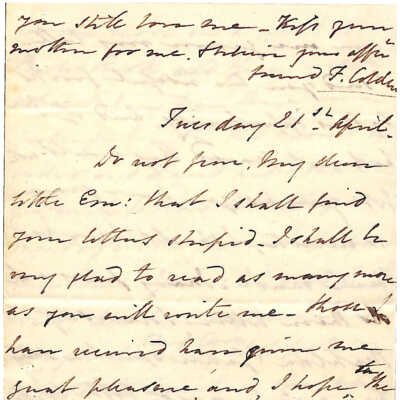 you still love me - Kiss your
mother for me. & believe your affte
friend F. Colden
Tuesday 21st April -
Do not fear, My dear
little Em: that I shall find
your letters stupid - I shall be
very glad to read as many more
as you will write me - those I
have received have given me
great pleasure and, I hope the